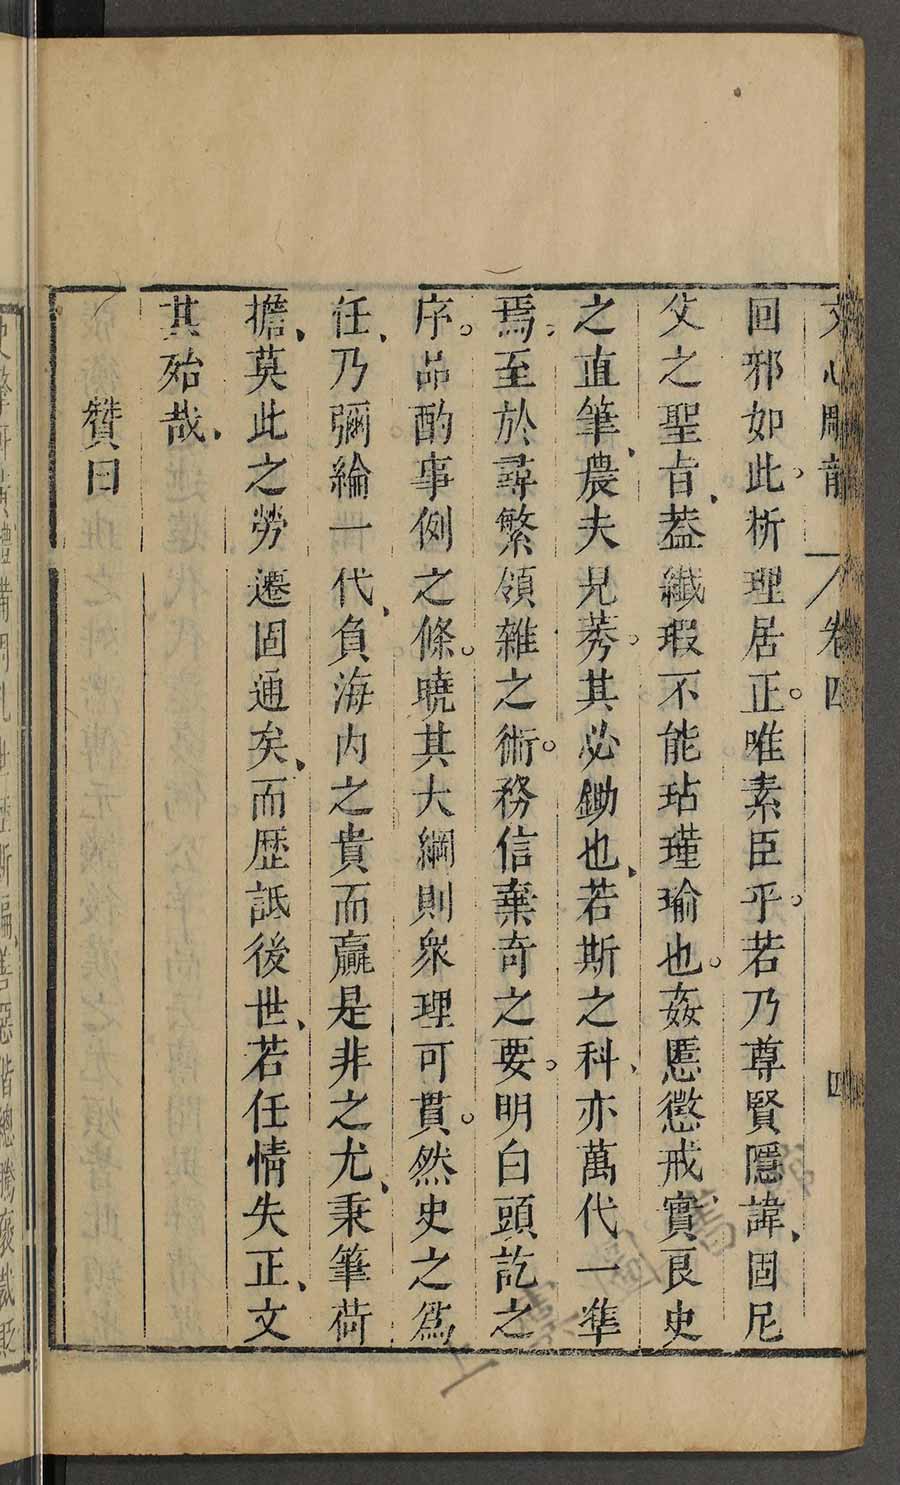 文心雕龍 卷四 四
回邪如此析理居正唯素臣乎若乃尊賢隱諱固尼
父之聖旨蓋纖瑕不能玷瑾瑜也姦慝懲戒實良史
之直筆農夫見莠其必鋤也若斯之科亦萬代一準
焉至於尋繁領雜之術務信棄奇之要明白頭訖之
序品酌事例之條曉其大綱則衆理可貫然史之爲
任乃彌綸一代負海内之責而贏是非之尤秉筆荷
擔莫此之勞遷固通矣而歷詆後世若任情失正文
其殆哉
贊曰